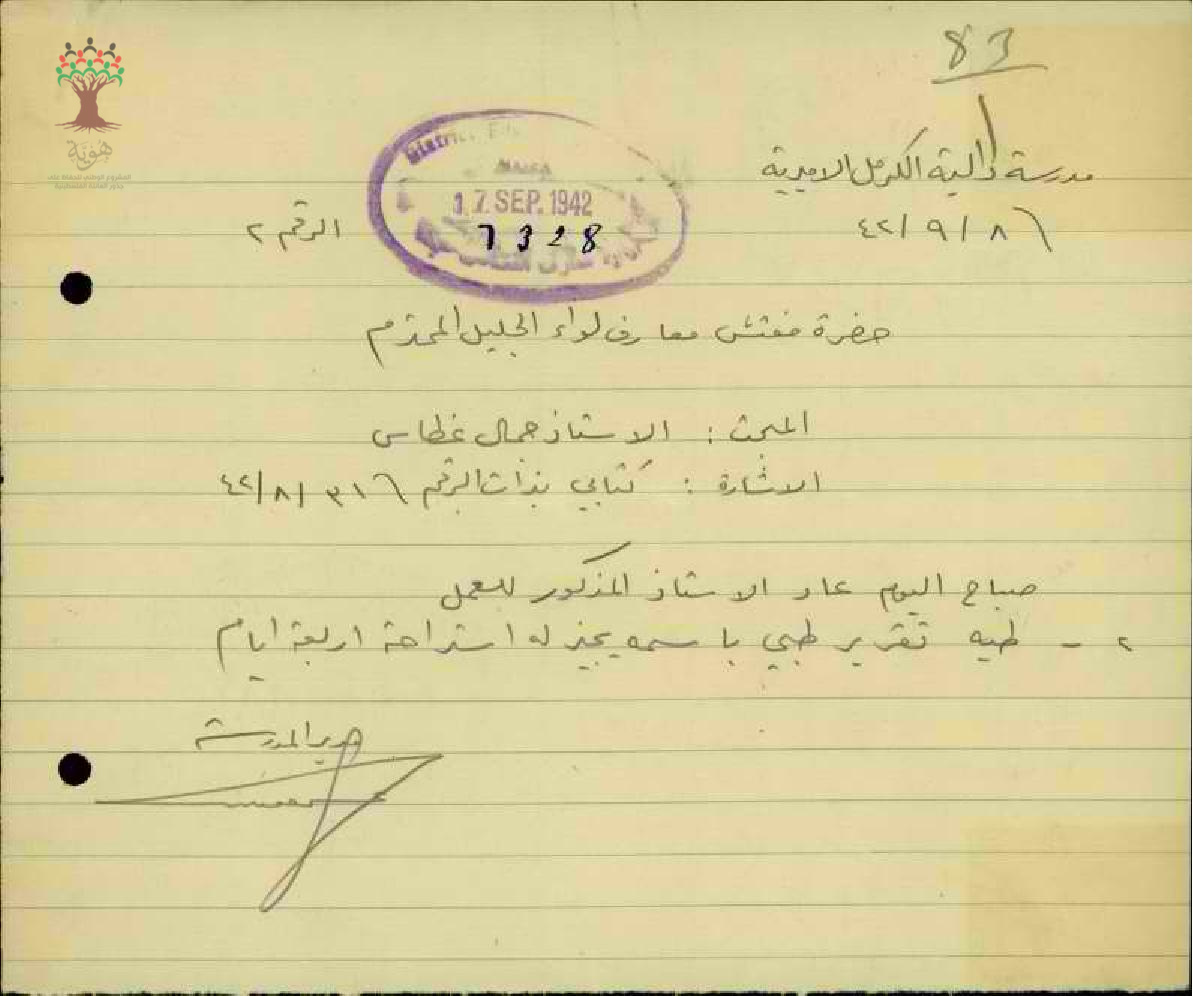 83
مدرسة دالية الكرمل الاميرية
الرقم ٢
٤٢/٩/٨
District
HAIFA
17 SEP. 1942
7328
حضرة مفتش معارف لواء الجليل المحترم
المبحث : الاستاذ جمال غطاس
الاشارة : كتابي بذات الرقم ٤٢/٨/٣١
صباح اليوم عاد الاستاذ المذكور للعمل
٢ - طيه تقرير طبي باسمه يجيز له استراحة اربعة ايام
مدير المدرسة
هوية